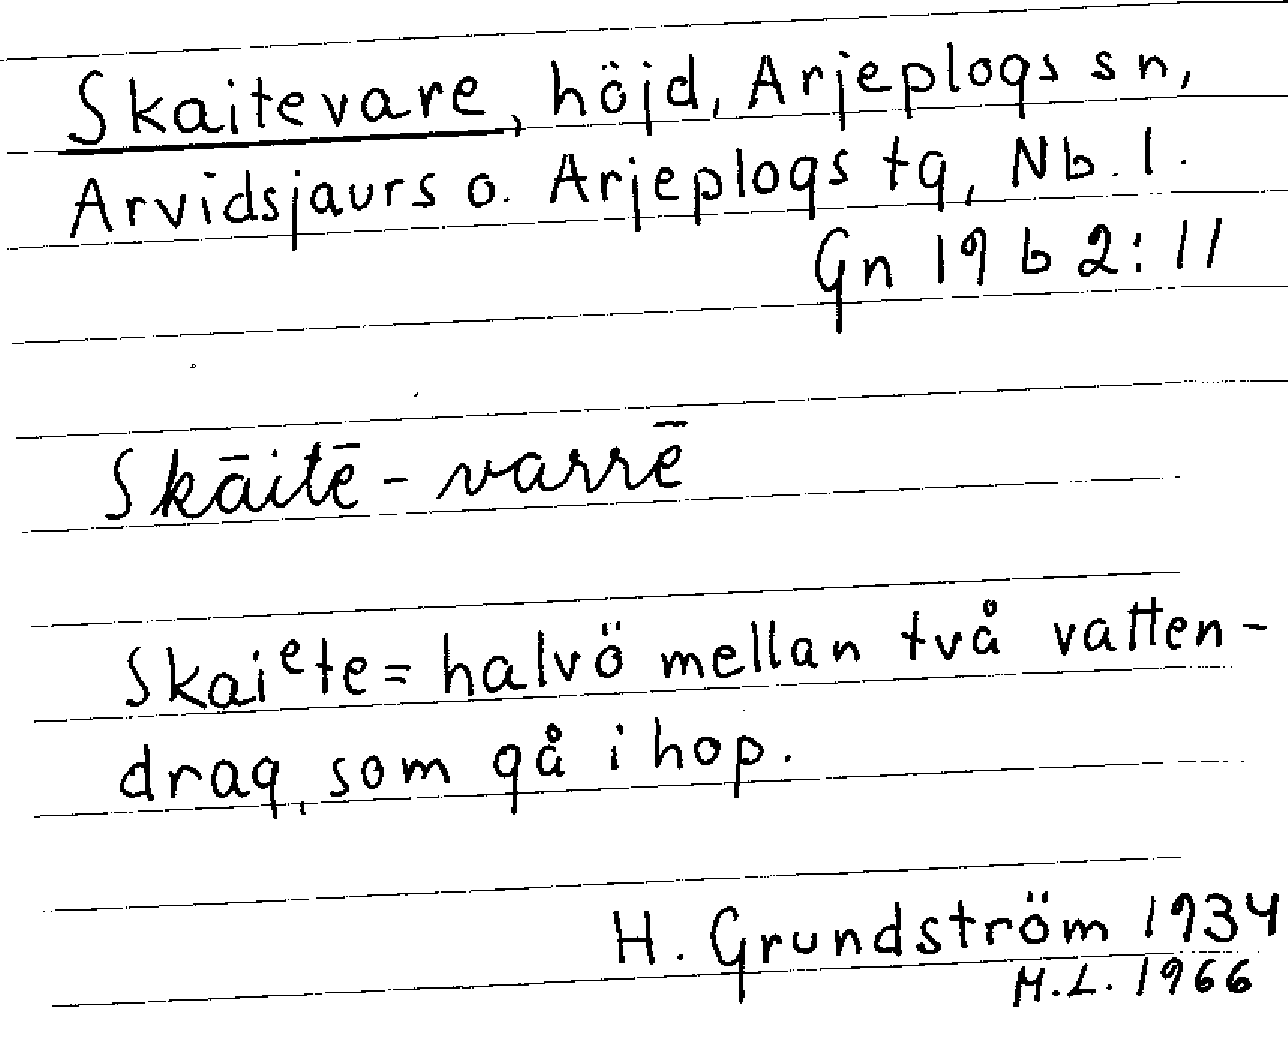 Skaitevare, höjd, Arjeplogs sn,
Arvidsjaurs o. Arjeplogs tg, Nb. l.
Gn 19 b 2:11
Skāitē-varrē
Skaiᵉte = halvö mellan två vatten-
drag, som gå i hop.
H. Grundström 1934
H.L. 1966